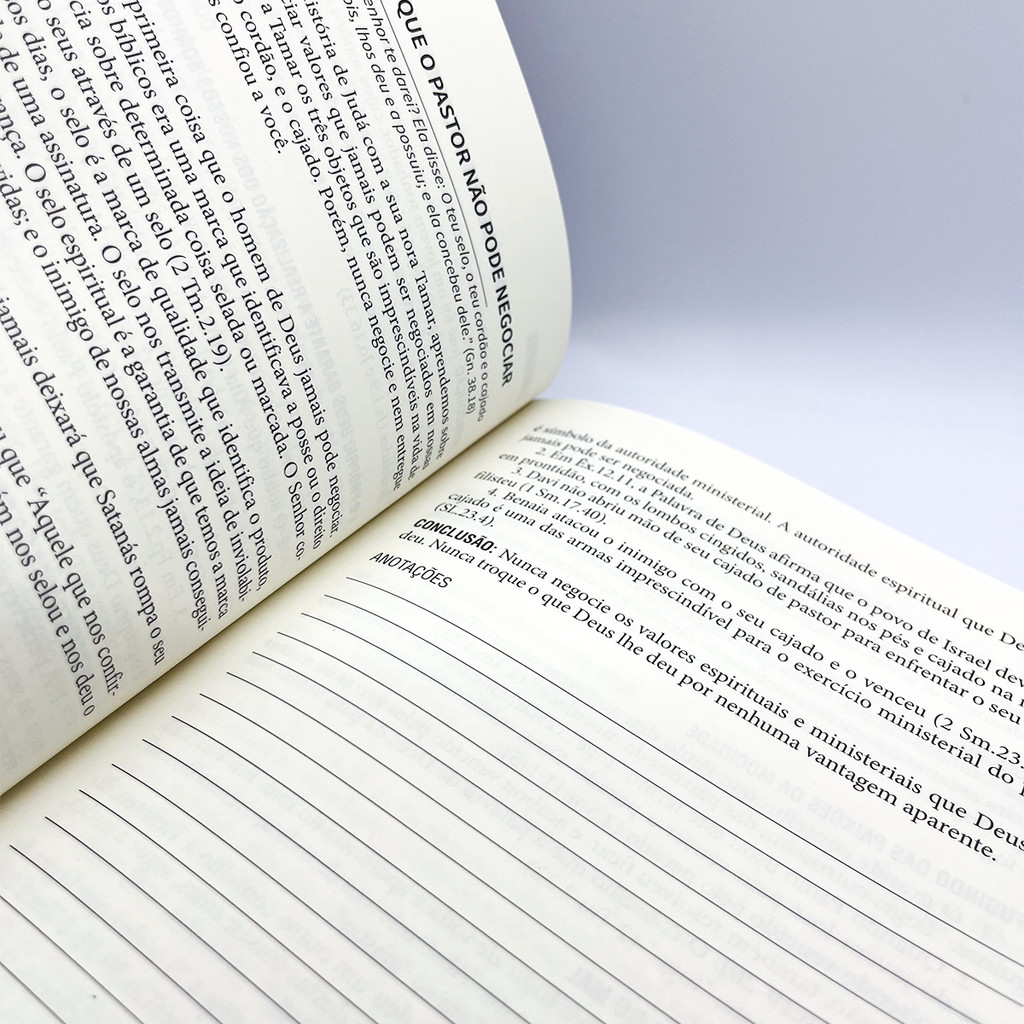 QUE O PASTOR NÃO PODE NEGOCIAR
enhor te darei? Ela disse: O teu selo, o teu cordão e o cajado
ois, lhos deu e a possuiu; e ela concebeu dele." (Gn. 38.18)
istória de Judá com a sua nora Tamar, aprendemos sobre
ciar valores que jamais podem ser negociados em nossas
a Tamar os três objetos que são imprescindíveis na vida de
cordão, e o cajado. Porém, nunca negocie e nem entregue
s confiou a você.
primeira coisa que o homem de Deus jamais pode negociar,
s bíblicos era uma marca que identificava a posse ou o direito
cia sobre determinada coisa selada ou marcada. O Senhor co
o seus através de um selo (2 Tm.2.19).
os dias, o selo é a marca de qualidade que identifica o produto,
de uma assinatura. O selo nos transmite a ideia de inviolabi-
rança. O selo espiritual é a garantia de que temos a marca
vidas; e o inimigo de nossas almas jamais consegui-
jamais deixará que Satanás rompa o seu
u que "Aquele que nos confir-
ém nos selou e nos deu o
é símbolo da autoridade ministerial. A autoridade espiritual que De
jamais pode ser negociada.
2. Em Êx.12.11 a Palavra de Deus afirma que o povo de Israel dev
em prontidão, com os lombos cingidos, sandálias nos pés e cajado na
3. Davi não abriu mão de seu cajado de pastor para enfrentar o seu
filisteu (1 Sm.17.40).
4. Benaia atacou o inimigo com o seu cajado e o venceu (2 Sm.23.
cajado é uma das armas imprescindível para o exercício ministerial do
(SL.23.4).
CONCLUSÃO: Nunca negocie os valores espirituais e ministeriais que Deus
deu. Nunca troque o que Deus lhe deu por nenhuma vantagem aparente.
ANOTAÇÕES